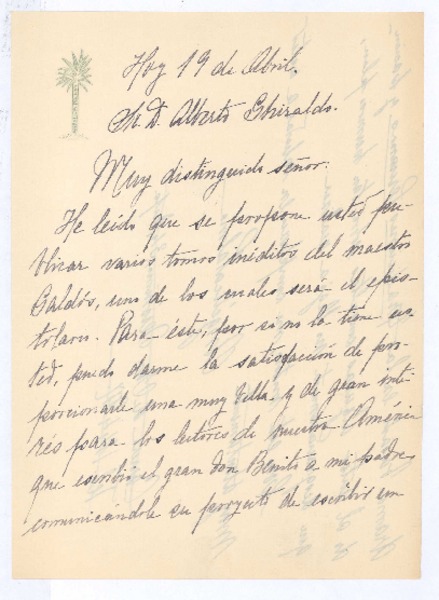 Hoy 19 de Abril.
Sr. D. Alberto Ghiraldo.
Muy distinguido señor:
He leído que se propone usted pu-
blicar varios tomos inéditos del maestro
Galdós, uno de los cuales será el epis-
tolario. Para éste, por si no la tiene us-
ted, puedo darme la satisfacción de pro-
porcionarle una muy bella y de gran inte-
rés para los lectores de nuestra América
que escribió el gran don Benito a mi padre
comunicándole su proyecto de escribir un